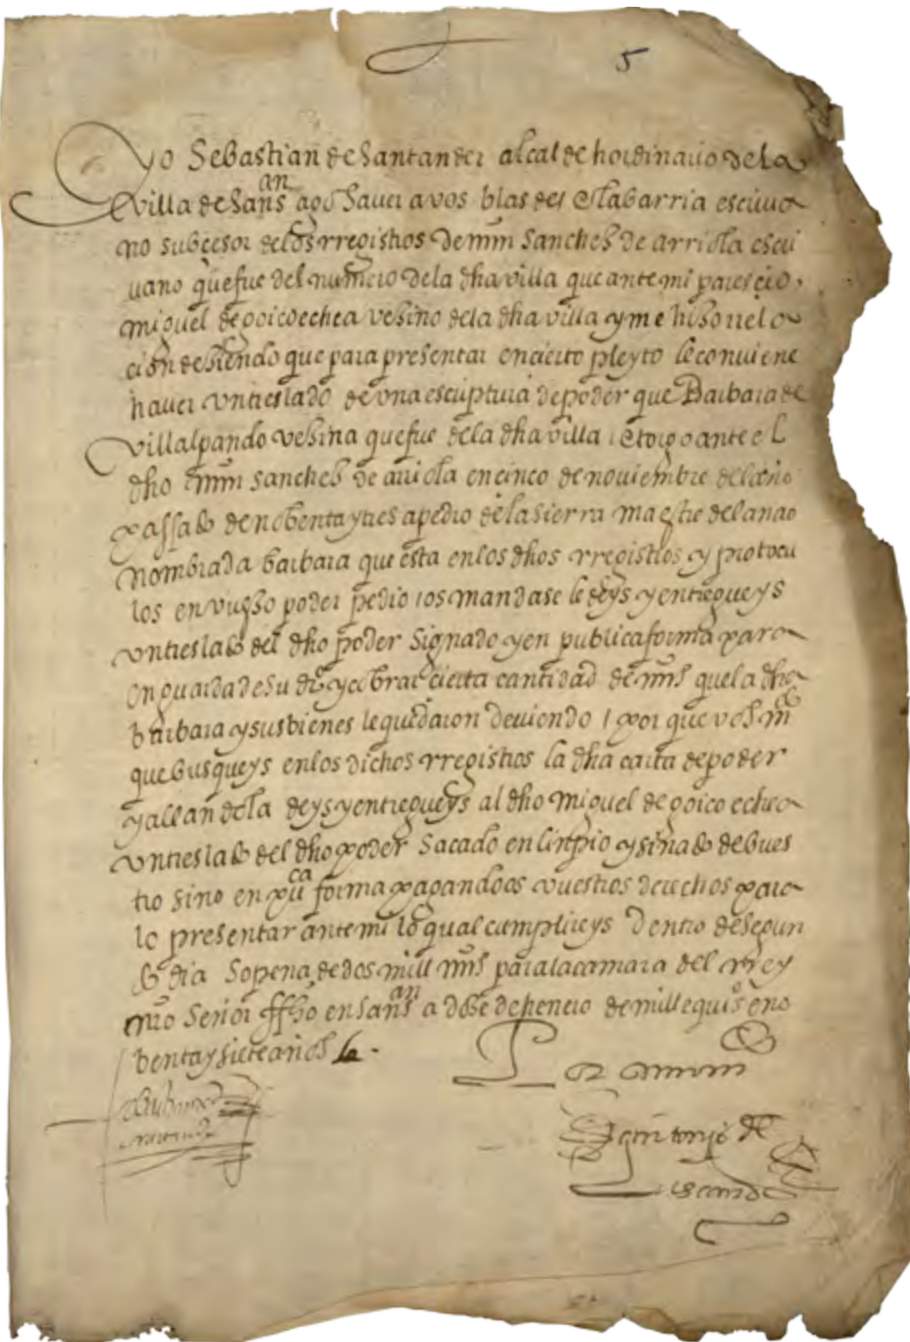 5
Yo Sebastian de Santander alcalde hordinario de la
villa de San San an hago saver a vos blas de Olabarria escriva
no subcesor de los rregistros de mĩn Sanches de arriola escri
uano que fue del numero de la dha villa que ante mi parescio
miguel de goicoechea vesino de la dha villa y me hiso rrela
cion desiendo que para presentar en cierto pleyto le conviene
haver un treslado de una escriptura de poder que Barbara de
villalpando vesina que fue de la dha villa otorgo ante el
dho mĩn sanches de arriola en cinco de noviembre del año
passado de nobenta y tres a pedro de la sierra maestre de la nao
nombrada barbara que esta en los dhos rregistros y protocu
los en vuestro poder pedio os mandase le deys y entregueys
un treslado del dho poder signado y en publica forma para
en guarda de su dro y cobrar cierta cantidad de mrs que la dha
barbara y sus bienes le quedaron deviendo / por que vos mdo
que busqueys en los dichos rregistros la dha carta de poder
y allandola deys y entregueys al dho miguel de goicoechea
un treslado del dho poder sacado en linpio y sinado de vues
tro sino en puca forma pagandoos vuestros derechos para
lo presentar ante mi lo qual cumplireys dentro de segun
do dia so pena de dos mill mrs para la camara del rrey
nro señor ffho en San San an a dose de henero de mill e quios e no
benta y siete años
Por su mdo